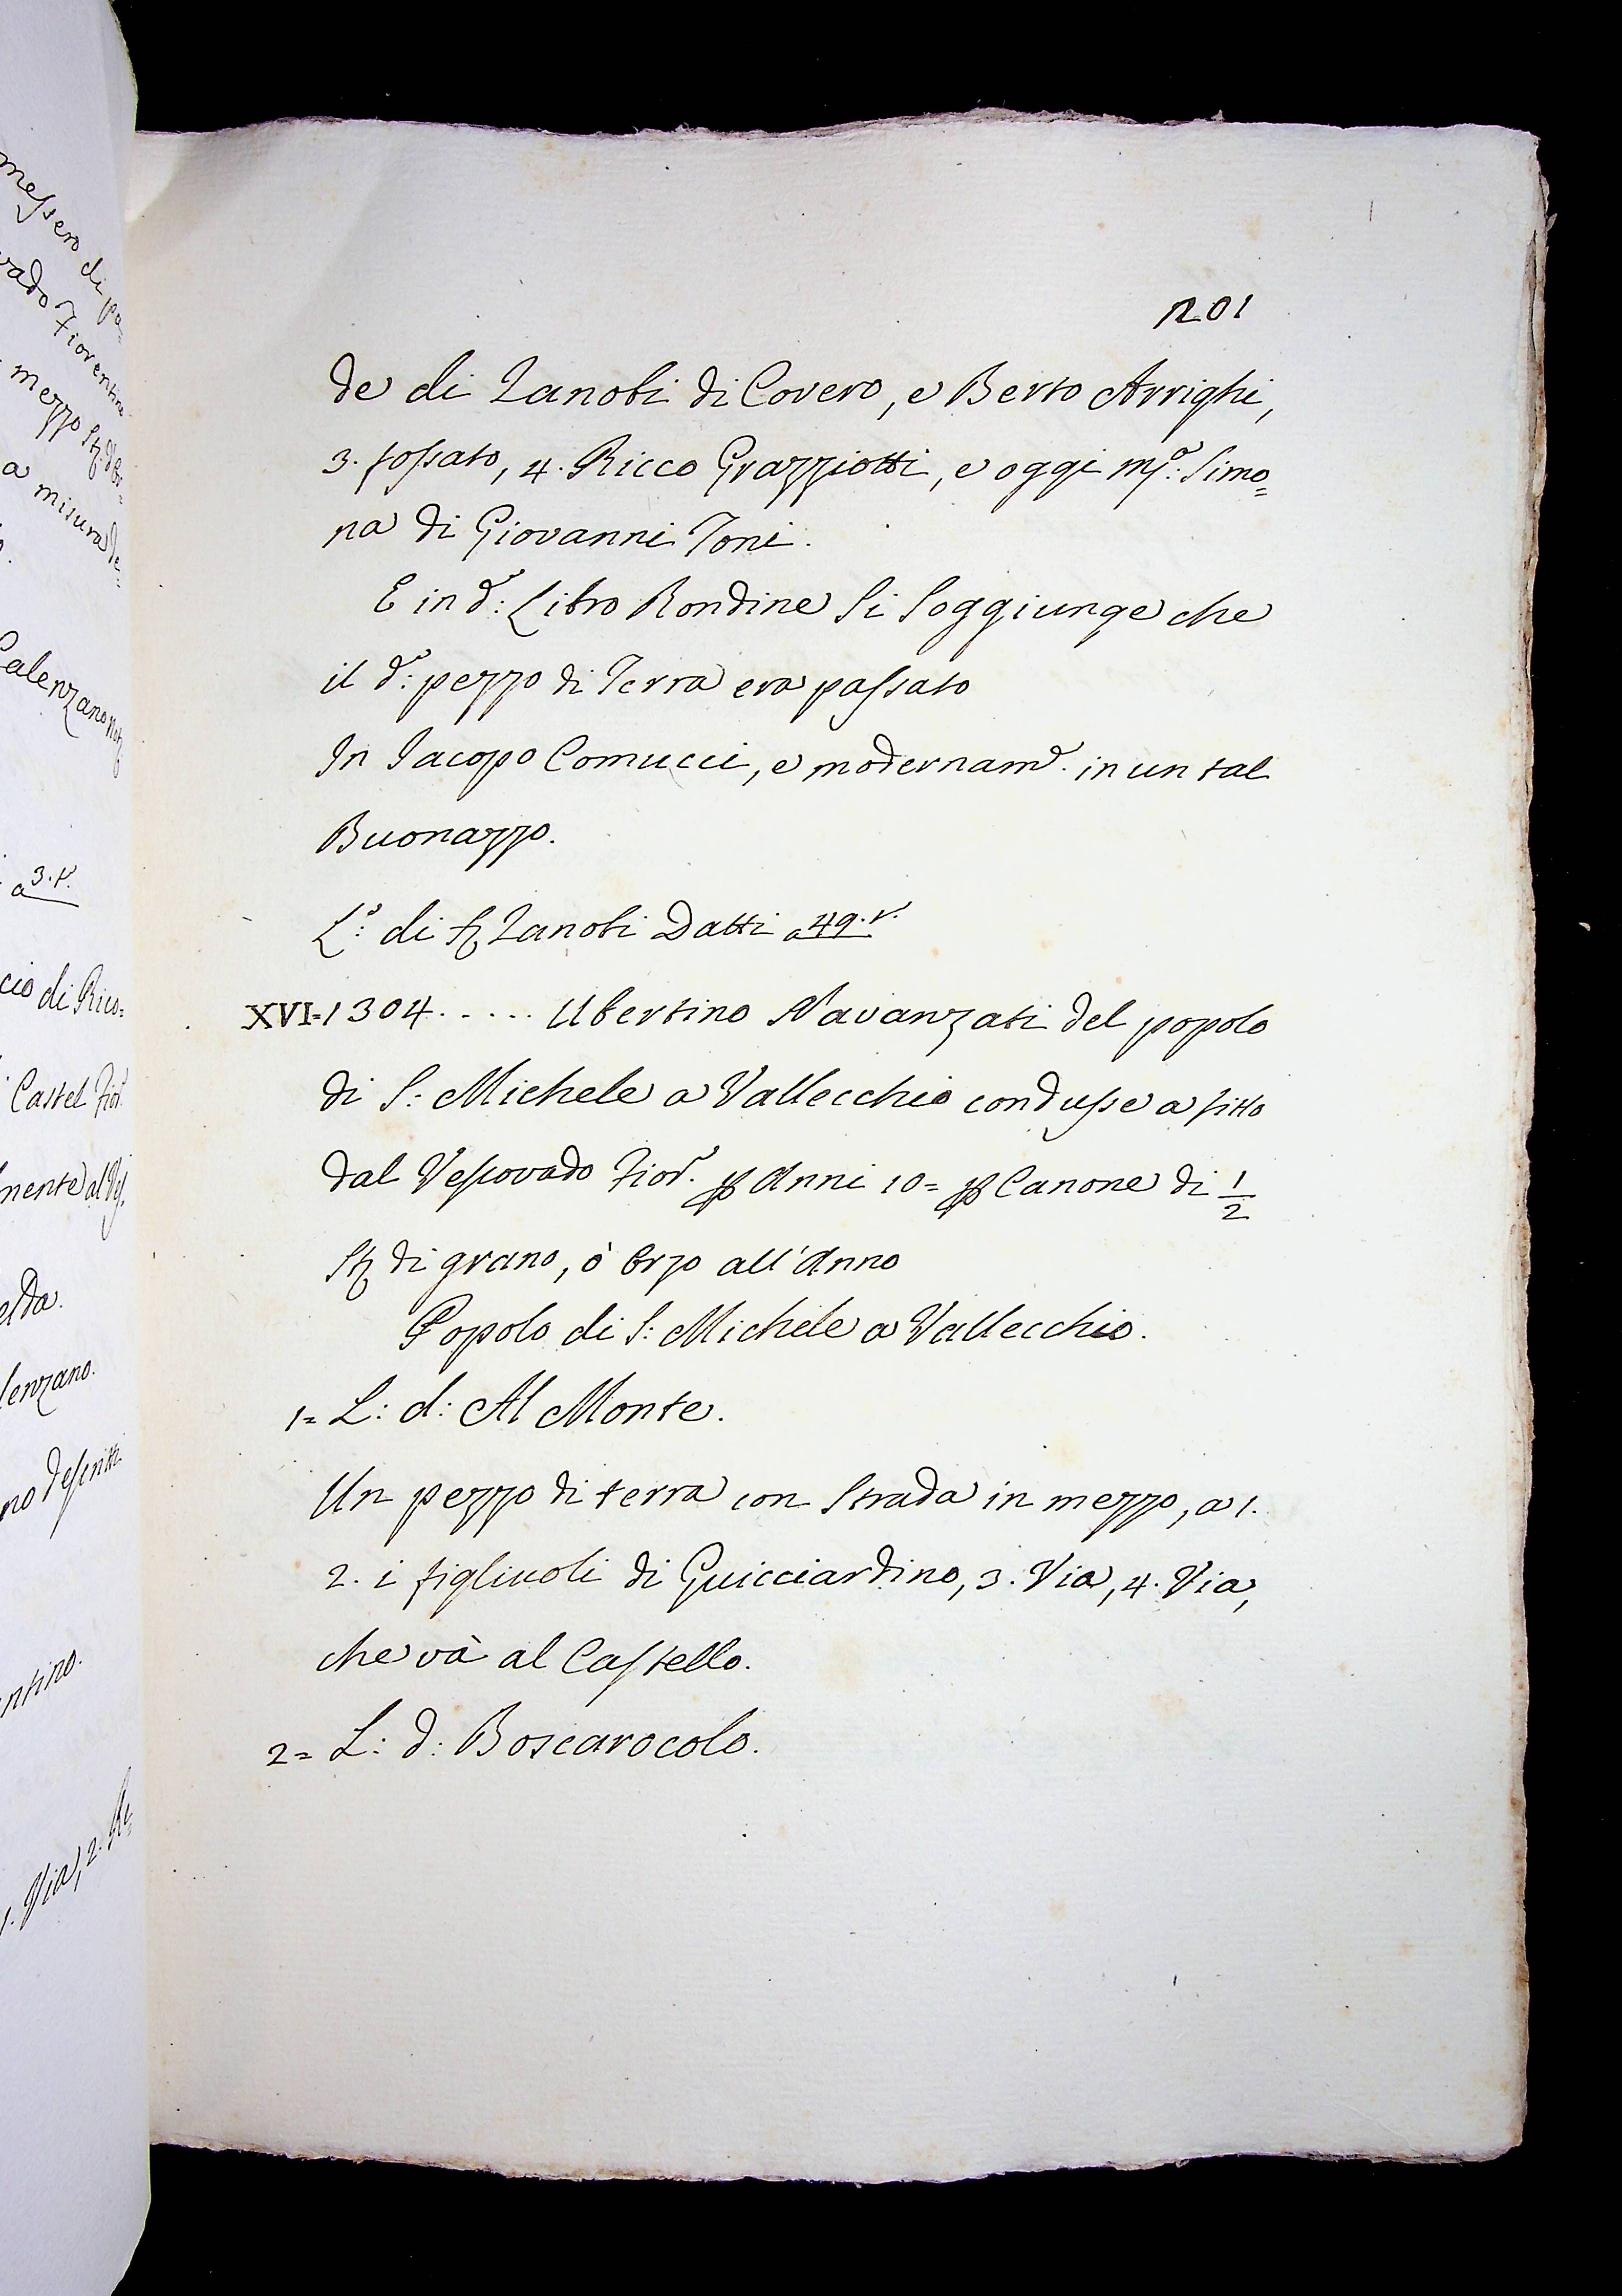 201
de di Zanobi di Covero, e Berto Arrighi,
3. fossato, 4. Ricco Grazziotti, e oggi Mª: Simo=
na di Giovanni Toni.
E in dº: Libro Rondine si soggiunge che
il dº: pezzo di Terra era passato
In Jacopo Comucci, e modernamᵉ. in un tal
Buonazzo.
Lº: di Zanobi Datti a 49. t.
XVI=1304..... Ubertino Navanzati del popolo
di S: Michele a Vallecchio condusse a fitto
dal Vescovado Fiorº. Anni 10= Canone di 1/2
St di grano, ò Orzo all'Anno
Popolo di S: Michele a Vallecchio.
1= L: d: Al Monte.
Un pezzo di terra con strada in mezzo, a 1.
2. i figliuoli di Guicciardino, 3. Via, 4. Via,
che và al Castello.
2= L: d: Boscarocolo.
messero di pa=
vado Fiorentino
mezzo St. d'Or=
a misura de=
Calenzano
a 3. t.
cio di Rico=
Castel Fior
mente al Ves.
lenzano.
no descritti
ntino.
1. Via, 2. Ri=